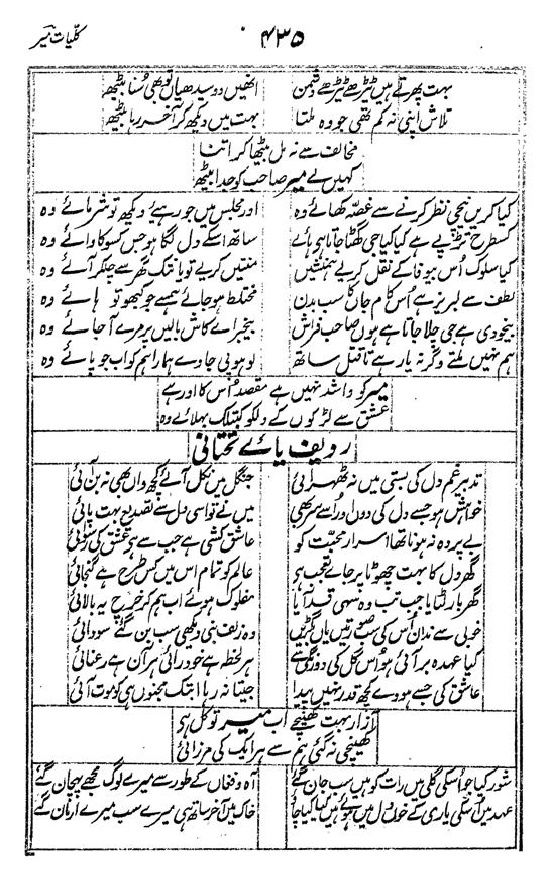 کلیات میر
۴۳۵
بہت پھرتے ہیں ٹیڑھے ٹیڑھے دشمن انھیں دو سیدھیاں تو بھی سنا بیٹھ
تلاش اپنی نہ کم تھی جو وہ ملتا بہت میں دیکھ کر آخر رہا بیٹھ
مخالف سے نہ مل بیٹھا کر اتنا
کہیں لے میر صاحب کو جدا بیٹھ
کیا کریں نیچی نظر کرنے سے غصہ کھائے وہ اور مجلس میں جو رہیے دیکھ تو شرمائے وہ
کس طرح تڑپے ہے کیا کیا جی گھٹا جاتا ہے ہائے ساتھ اسکے دل لگا ہو جس کسو کا وائے وہ
کیا سلوک اُس بیوفا کے نقل کریے ہمنشیں منتیں کریے تو یاں تک گھر سے چلکر آئے وہ
لطف سے لبریز ہے اُس کام جاں کا سب بدن مختلط ہو جائے ہمسے جو کبھو تو ہائے وہ
بیخودی ہے جی چلا جاتا ہے ہوں صاحب فراش بیخبر اے کاش بالیں پر مرے آجائے وہ
ہم نہیں ملتے وگرنہ یار ہے تا قتل ساتھ لوہو پی جاوے ہمارا ہم کو اب جو پائے وہ
میر کو واشد نہیں ہے مقصد اُس کا اور ہے
عشق سے لڑکوں کے دلکو کبتلک بہلائے وہ
ردیف یائے تحتانی
تدبیر غم دل کی بستی میں نہ ٹھہرائی جنگل میں نکل آئے کچھ واں بھی نہ بن آئی
خواہش ہو جسے دل کی دل دوں اور اسے سر بھی میں نے تو اسی دل سے تصدیع بہت پائی
بے پردہ نہ ہونا تھا اسرار محبت کو عاشق کشی ہے جب سے ہے عشق کی رسوائی
گھر دل کا بہت چھوٹا پر جائے تعجب ہے عالم کو تمام اس میں کس طرح ہے گنجائی
گھر بار لٹایا جب تب وہ سہی قد آیا مفلوک ہوئے اب ہم کر خرچ یہ بالائی
خوبی سے ندان اُس کی سب صورتیں یاں بگڑیں وہ زلف بنی دیکھی سب بن گئے سودائی
کیا عہدہ بر آئی ہو اُس گل کی دورنگی سے ہر لحظہ ہے خود رائی ہر آن ہے رعنائی
عاشق کی جسے ہووے کچھ قدر نہیں پیدا جیتا نہ رہا ابتک مجنوں ہی کو موت آئی
آزار بہت کھینچے اب میر توکل ہی
کھینچی نہ گئی ہم سے ہر ایک کی مرزائی
شور کیا جو اُسکی گلی میں رات کو ہیں سب جان گئے آہ و فغاں کے طور سے میرے لوگ مجھے پہچان گئے
عہد میں اسکی یاری کے خوں دل میں ہوئے ہیں کیا کیا چاؤ خاک میں آخر ساتھ ہی میرے سب میرے ارمان گئے